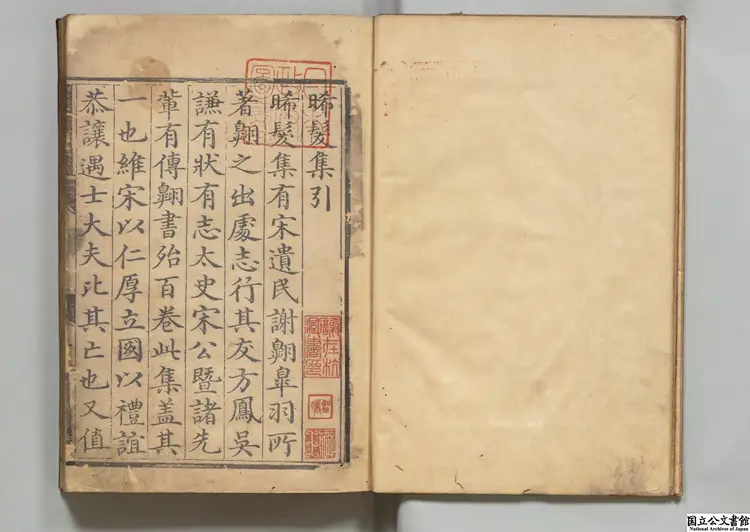 晞髮集引
晞髮集有宋遺民謝翺皐羽所
著翺之出處志行其友方鳳吳
謙有狀有志太史宋公暨諸先
輩有傳翺書殆百卷此集盖其
一也維宋以仁厚立國以禮誼
恭讓遇士大夫比其亡也又值
国立公文書館
National Archives of Japan